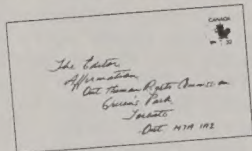 CANADA
The Editor
Affirmation
Ont Human Rights Commission
Queen's Park
Toronto
Ont. M7A 1A2